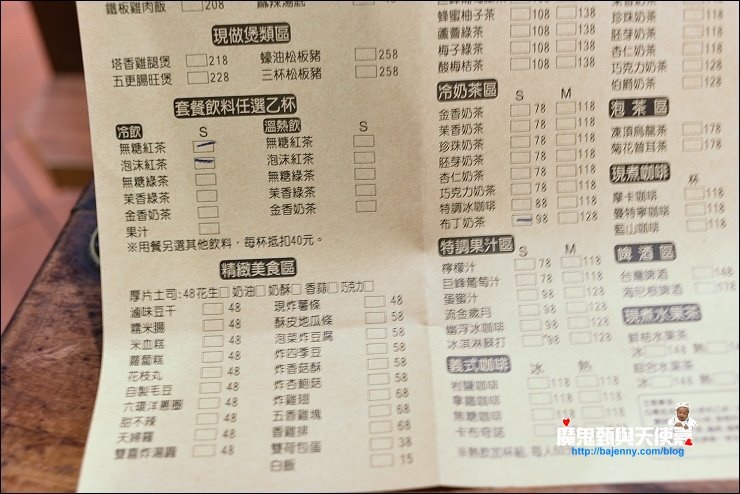 鐵板雞肉飯 208
麻辣湯底
現做煲類區
塔香雞腿煲 218 蠔油松板豬 258
五更腸旺煲 228 三杯松板豬 258
套餐飲料任選乙杯
冷飲 S 溫熱飲 S
無糖紅茶 無糖紅茶
泡沫紅茶 泡沫紅茶
無糖綠茶 無糖綠茶
茉香綠茶 茉香綠茶
金香奶茶 金香奶茶
果汁
※用餐另選其他飲料，每杯抵扣40元。
精緻美食區
厚片土司:48 花生 奶油 奶酥 香蒜 巧克力
滷味豆干 48 現炸薯條 48
糯米腸 48 酥皮地瓜條 58
米血糕 48 泡菜炸豆腐 58
蘿蔔糕 48 炸四季豆 58
花枝丸 48 炸香菇酥 58
自製毛豆 48 炸杏鮑菇 58
六環洋蔥圈 48 炸雞翅 58
甜不辣 48 五香雞塊 68
天婦羅 48 香雞排 68
雙喜炸湯圓 48 雙荷包蛋 38
白飯 15
蜂蜜柚子茶 108 138
蘆薈綠茶 108 138
梅子綠茶 108 138
酸梅桔茶 108 138
冷奶茶區 S M
金香奶茶 78 118
茉香奶茶 78 118
珍珠奶茶 78 118
胚芽奶茶 78 118
杏仁奶茶 78 118
巧克力奶茶 78 118
特調冰咖啡 88 118
布丁奶茶 98 128
特調果汁區 S M
檸檬汁 78 118
巨峰葡萄汁 78 118
蛋蜜汁 98 128
流金歲月 98 128
幽浮冰咖啡 98 128
冰淇淋蘇打 98 128
義式咖啡 冰 熱
拿鐵咖啡 118 118
焦糖咖啡
卡布奇諾
茉香奶茶 118
珍珠奶茶 118
胚芽奶茶 118
杏仁奶茶 118
巧克力奶茶 118
伯爵奶茶 118
泡茶區
凍頂烏龍茶 178
菊花普耳茶 178
現煮咖啡 杯
摩卡咖啡 118
曼特寧咖啡 118
藍山咖啡 118
啤酒區
台灣啤酒 148
海尼根啤酒 178
現煮水果茶
鮮桔水果茶
冰 148 熱 168
綜合水果茶
冰 148 熱
魔鬼甄與天使嘉
http://bajenny.com/blog